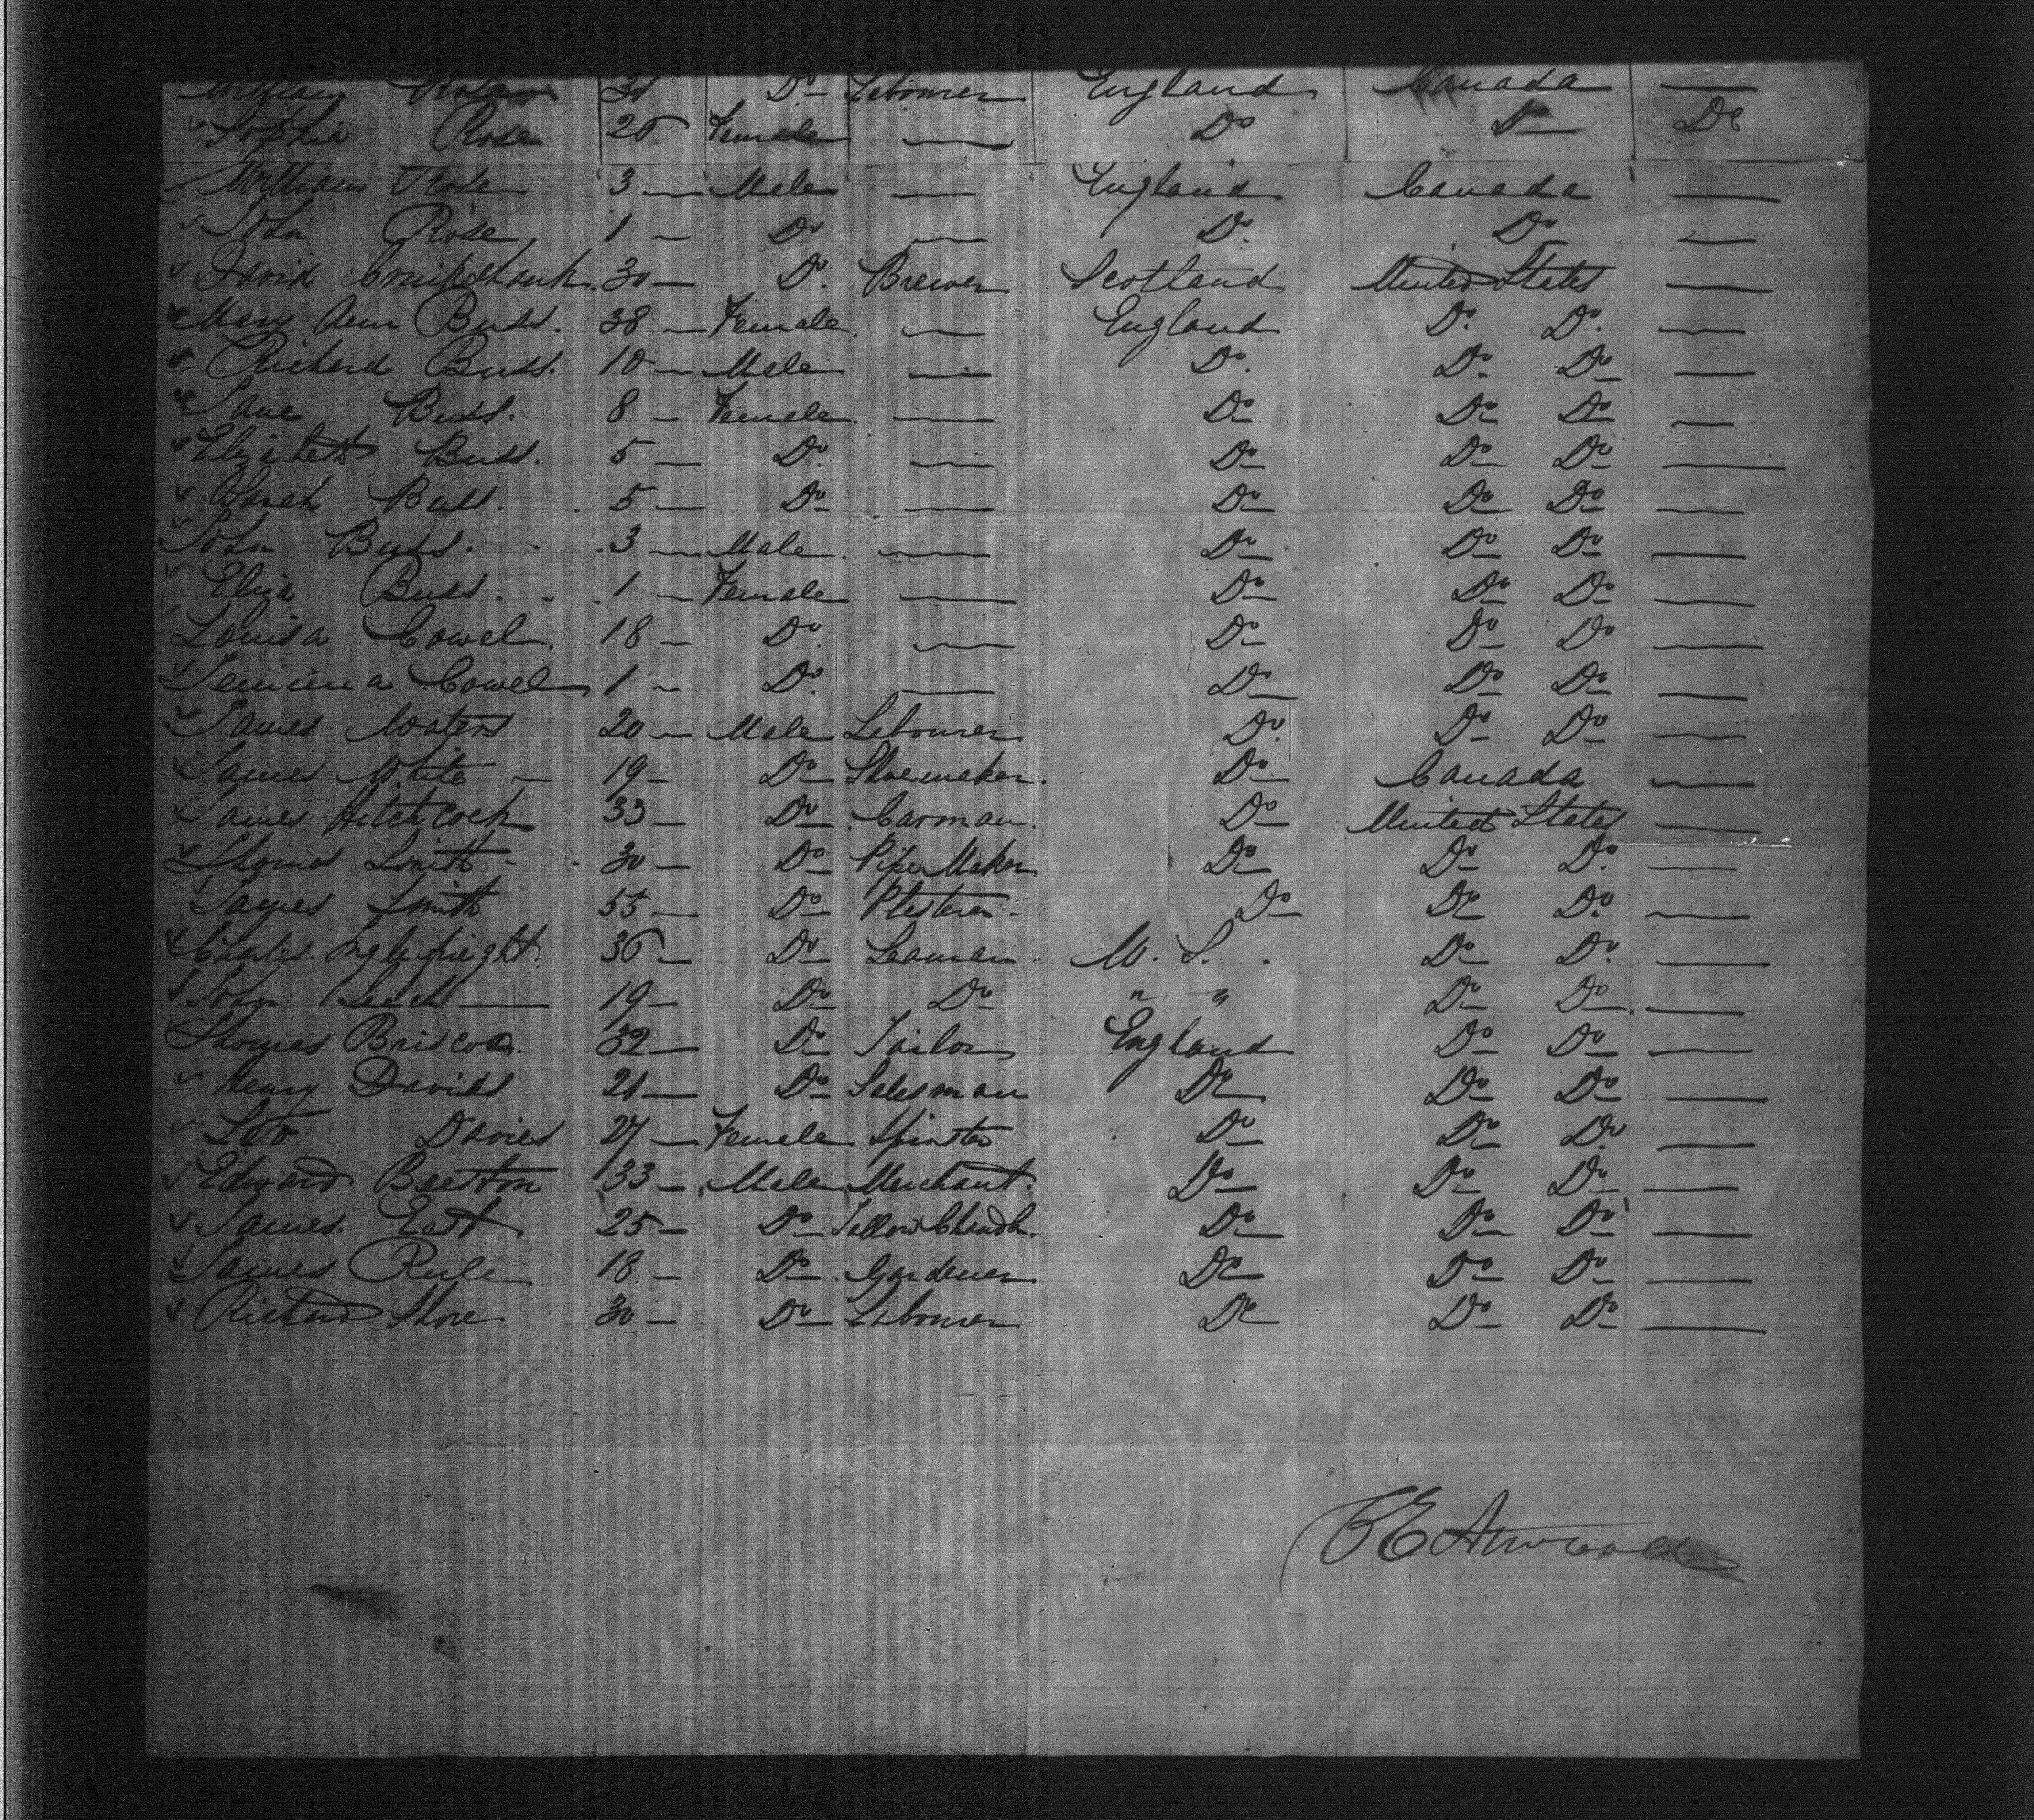 William Rose 31 Do Labourer England Canada —
Sophia Rose 26 Female — Do Do Do
William Rose 3 — Male — England Canada —
John Rose, 1 — Do — Do Do —
David Cruikshank. 30 — Do. Brewer Scotland United States —
Mary Ann Buss. 38 — Female. — England Do. Do. —
Richard Buss. 10 — Male — Do. Do Do —
Jane Buss. 8 — Female. — Do Do Do —
Elizabeth Buss. 5 — Do. — Do Do Do —
Sarah Buss. 5 — Do — Do Do Do —
John Buss. 3 — Male. — Do Do Do —
Eliza Buss. 1 — Female — Do Do Do —
Louisa Cowel. 18 — Do. — Do Do Do —
Jemima Cowel 1 — Do. — Do Do Do —
James Waters 20 — Male Labourer Do. Do Do —
James White — 19 — Do Shoemaker. Do Canada —
James Hitchcock 33 — Do Carman. Do United States —
Thomas Smith - 30 — Do Pipe Maker Do Do Do. —
James Smith 55 — Do Plasterer - Do Do Do. —
Charles 36 — Do Seaman. U. S. Do Do. —
John Leech — 19 — Do Do " " Do Do. —
Thomas Briscoe. 32 — Do Tailor England Do Do —
Henry Davies 21 — Do Salesman Do Do Do —
Davies 27 — Female Spinster Do Do Do. —
Edward Beeton 33 — Male Merchant. Do Do Do —
James. East. 25 — Do Tallow Chandlr. Do Do Do —
James Rule 18. — Do. Gardener Do Do Do —
Richard Shore 30 — Do Labourer Do Do Do —